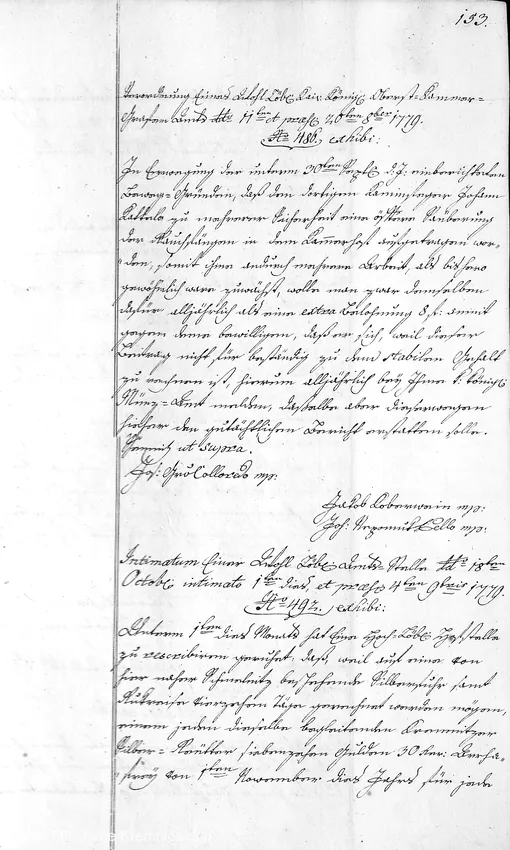 153.
Verordnung Eines Wohl Löbl. Kais. Königl. Oberst-Kammer-
Grafen Amts ddo 11ten et praes. 20ten 8ber 1779.
No 486. exhibi:
In Erwegung der unterm 30ten Septb. d. J. einberichteten
Beweg-Gründen, daß dem dortigen Kaminfeger Johann
zu mehrerer Sicherheit eine öftere Säuberung
der Rauchfängen in dem Kammerhof aufgetragen wor-
den, somit ihme andurch mehrere Arbeit, als bishero
gewöhnlich ware zuwächst, wolle man zwar demselben
dafür alljährlich als eine extra Belohnung 8 fl. damit
gegen deme bewilligen, daß er sich, weil dieser
Beitrag nicht für beständig zu dem stabilen Gehalt
zu rechnen ist, hierum alljährlich bey Ihme k. königl.
Münz-Amt melden, dasselbe aber dieserwegen
hieher den gutächtlichen Bericht erstatten solle.
Schemnitz ut supra.
Jos: Gr. v. Colloredo mp:
Jakob Loberwein mp:
Joh: Nepomuk mp:
Intimatum Einer Wohl Löbl. Amts-Stelle ddo 18ten
Octob. intimato 1ten dies, et praes. 4ten 9bris 1779.
No 492. exhibi:
Unterm 1ten dies Monats hat Eine Hoch Löbl. Hofstelle
zu rescribiren geruhet, daß, weil auf eine von
hier naher Schmelnitz bestehende Silberfuhr samt
Rukreise vierzehen Täge gerechnet werden mögen,
einem jeden dieselbe begleitenden Kremnitzer
Silber-Reutter siebenzehen Gulden 30 kr:
frey von 1ten November dies Jahrs für jede